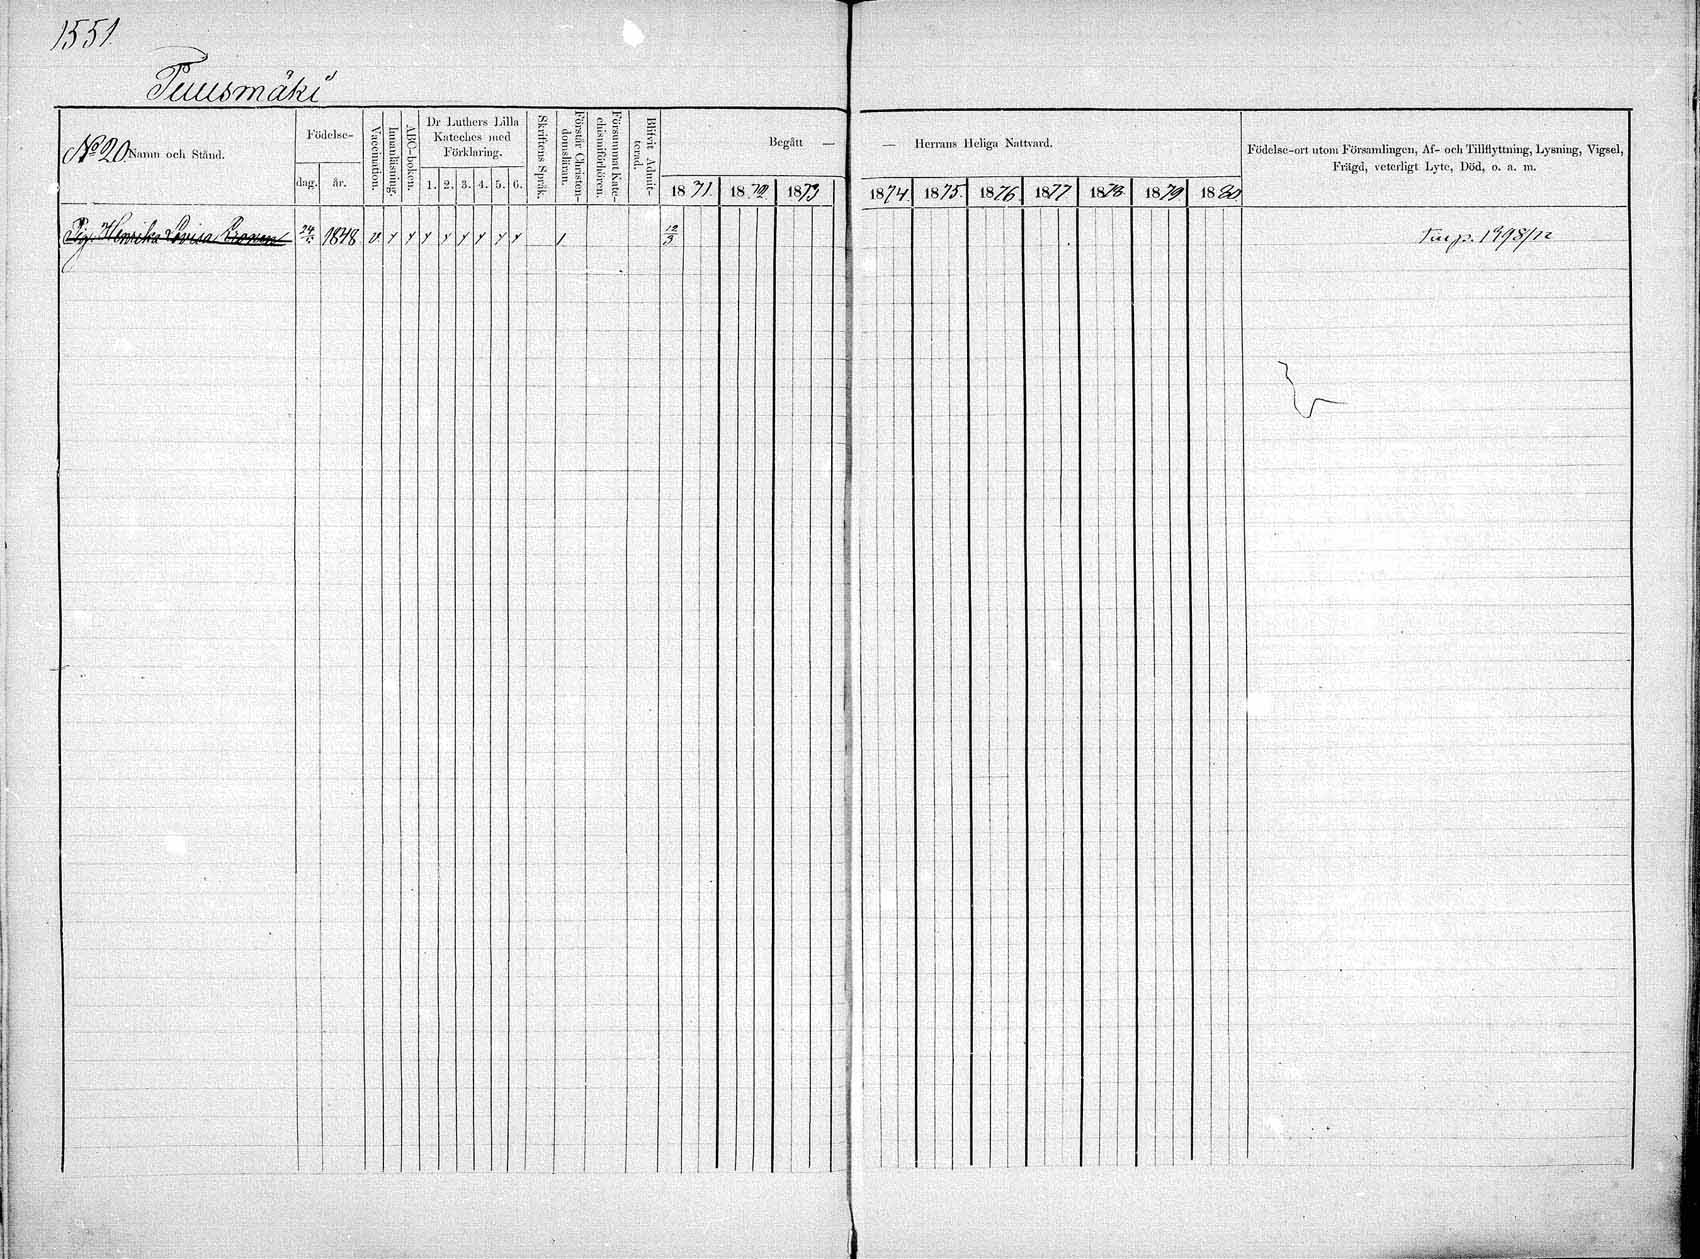 1551.
Tuusmäki
No 20 Namn och Stånd.
Födelse-
dag. år.
Vaccination.
Innanläsning.
ABC-boken.
Dr Luthers Lilla
Kateches med
Förklaring.
1. 2. 3. 4. 5. 6.
Skriftens Språk.
Förstår Christen-
domsläran.
Försummat Kate-
chismiförhören.
Blifvit Admit-
terad.
Begått —
1871. 1872. 1873
— Herrans Heliga Nattvard.
1874. 1875. 1876. 1877 1878. 1879 1880
Födelse-ort utom Församlingen, Af- och Tillflyttning, Lysning, Vigsel,
Frägd, veterligt Lyte, Död, o. a. m.
Pig. Henrika Lovisa 1848 v. x x x x x x x x 1 12/3